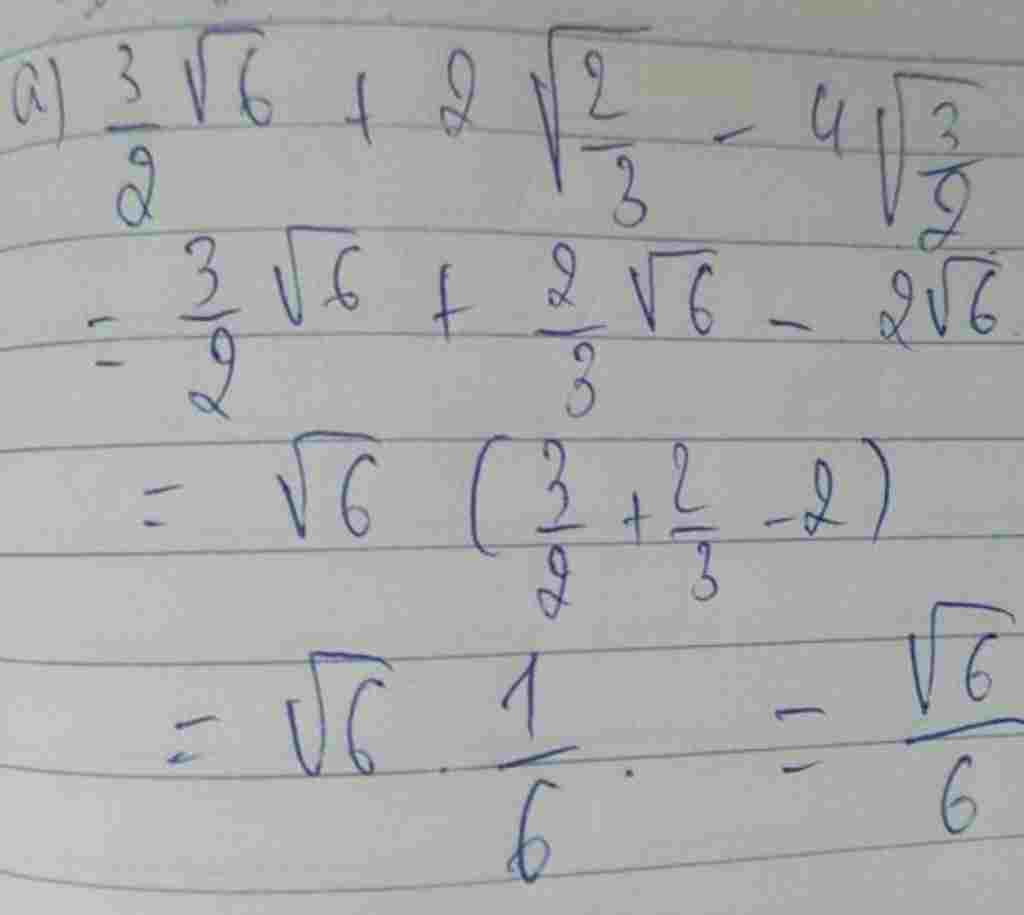 a) \frac{3}{2}\sqrt{6} + 2\sqrt{\frac{2}{3}} - 4\sqrt{\frac{3}{2}}
= \frac{3}{2}\sqrt{6} + \frac{2}{3}\sqrt{6} - 2\sqrt{6}
= \sqrt{6} (\frac{3}{2} + \frac{2}{3} - 2)
= \sqrt{6} . \frac{1}{6} . = \frac{\sqrt{6}}{6}